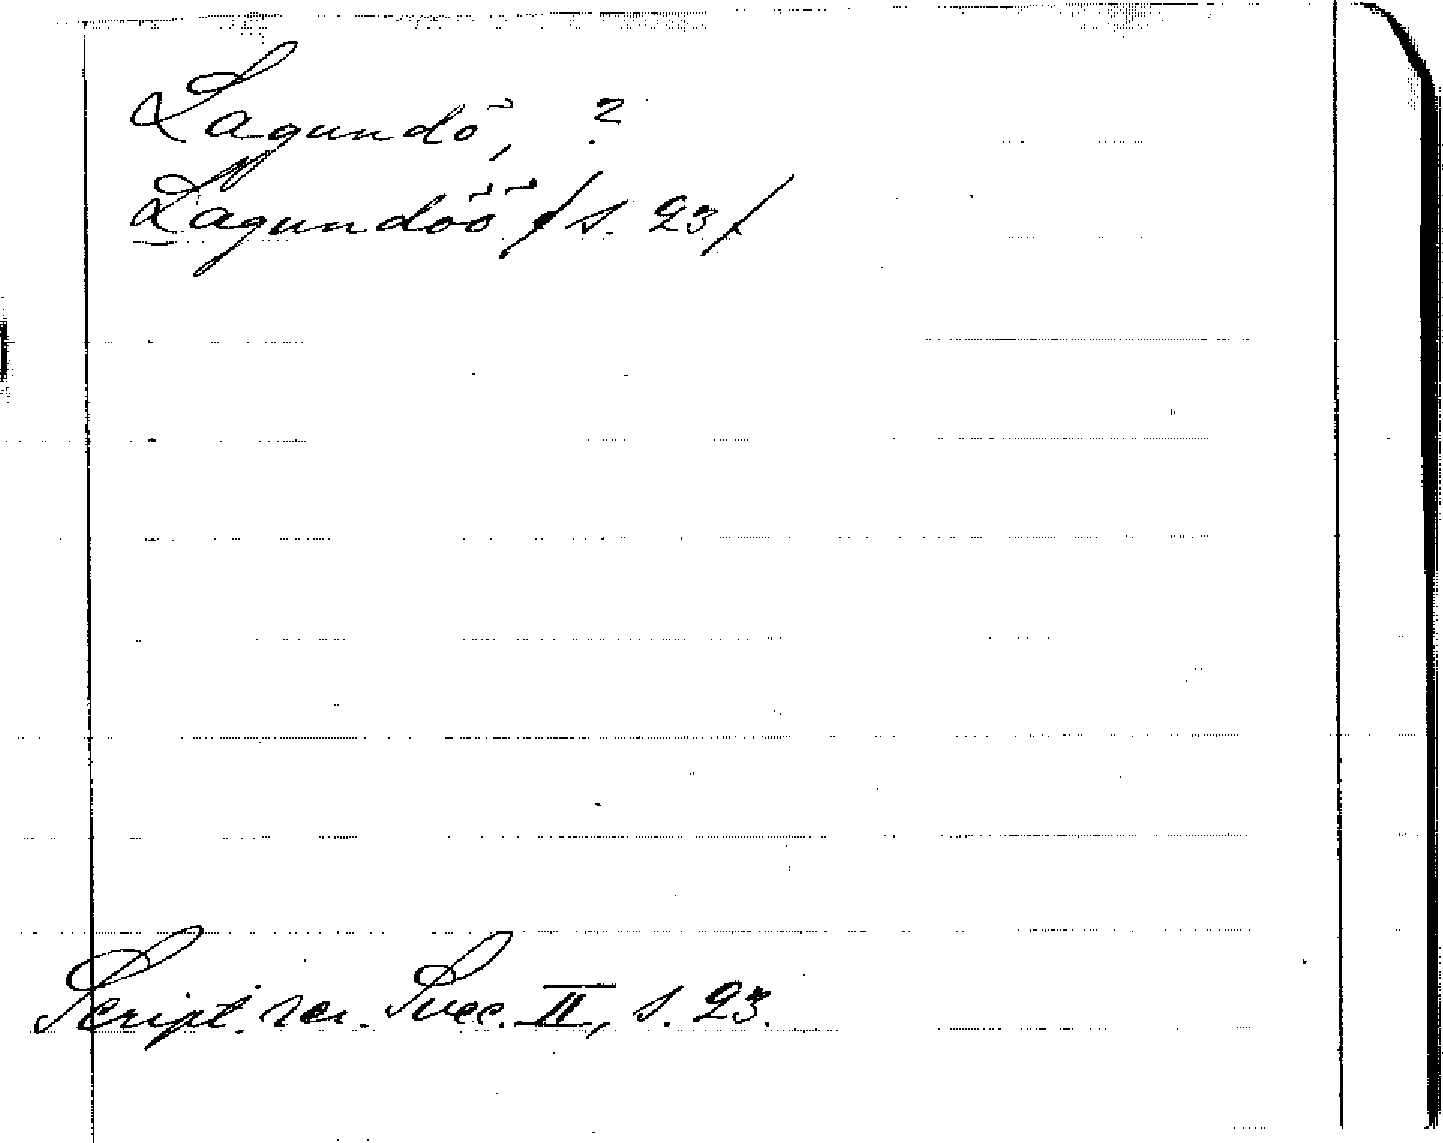 Lagundö, ?
Lagundöö /s. 23/
Script. rer. Svec. II, s. 23.